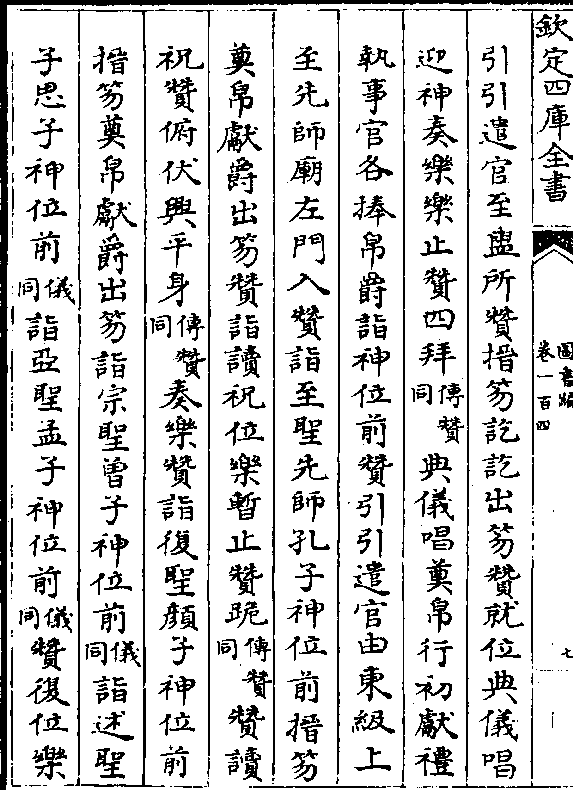 欽定四庫全書
圖書編
卷一百四
七
引引遣官至盥所贊搢笏訖訖出笏贊就位典儀唱
迎神奏樂樂止贊四拜傳贊同典儀唱奠帛行初獻禮
執事官各捧帛爵詣神位前贊引引遣官由東級上
至先師廟左門入贊詣至聖先師孔子神位前搢笏
奠帛獻爵出笏贊詣讀祝位樂暫止贊跪傳贊同贊讀
祝贊俯伏興平身傳贊同奏樂贊詣復聖顔子神位前
搢笏奠帛獻爵出笏詣宗聖曾子神位前儀同詣述聖
子思子神位前儀同詣亞聖孟子神位前儀同贊復位樂